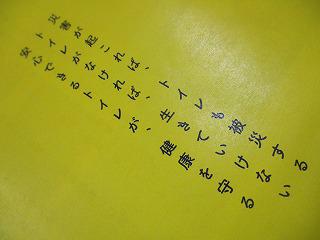 災害が起これば、トイレも被災する
トイレがなければ、生きていけない
安心できるトイレが、健康を守る